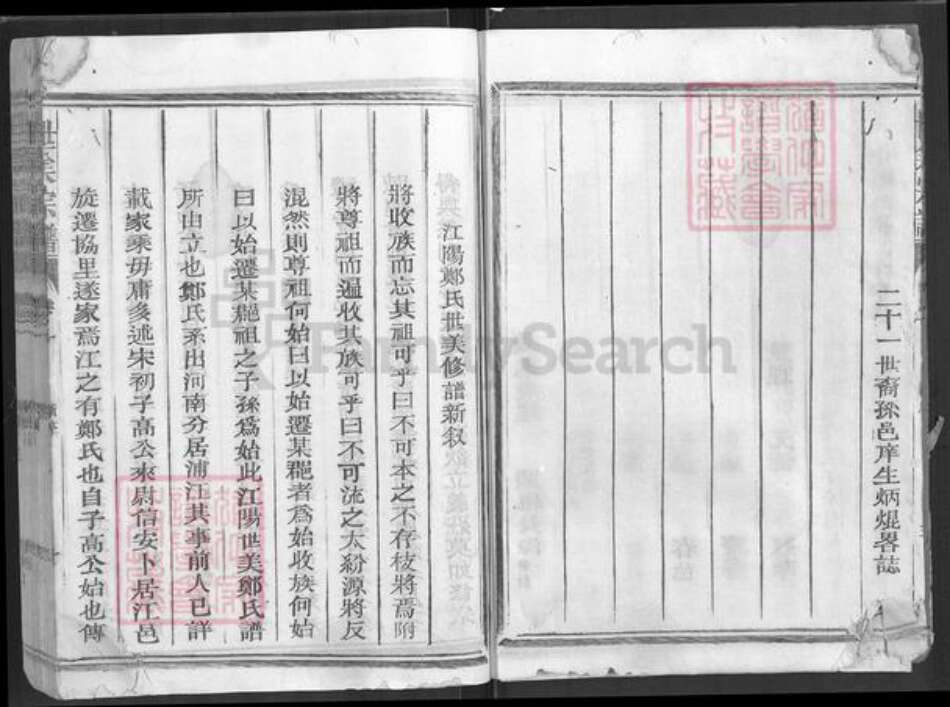 二十一世裔孫邑庠生炳焜畧誌
江陽鄭氏世美修譜新叙
將收族而忘其祖可乎曰不可本之不存枝將焉附
將尊祖而遍收其族可乎曰不可流之太紛源將反
混然則尊祖何始曰以始遷某郡者爲始收族何始
曰以始遷某郡祖之子孫爲始此江陽世美鄭氏譜
所由立也鄭氏系出河南分居浦江其事前人已詳
載家乘毋庸多述宋初子高公來尉信安卜居江邑
旋遷協里遂家焉江之有鄭氏也自子高公始也傳
FamilySearch